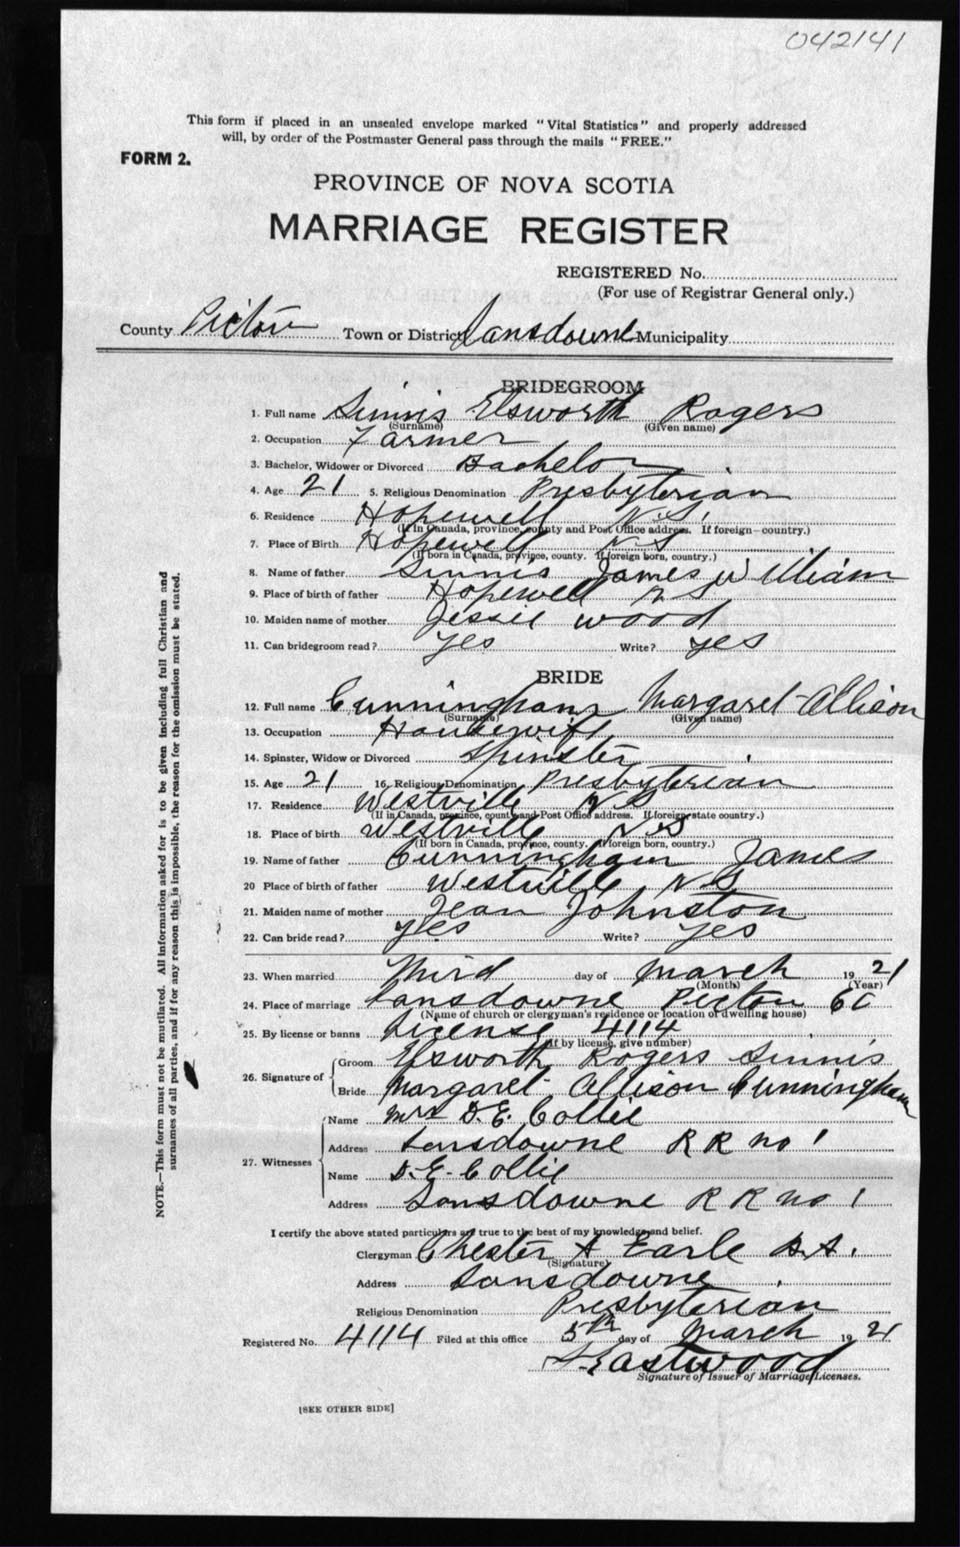 042141
This form if placed in an unsealed envelope marked "Vital Statistics" and properly addressed
will, by order of the Postmaster General pass through the mails "FREE."
FORM 2.
PROVINCE OF NOVA SCOTIA
MARRIAGE REGISTER
REGISTERED No.
(For use of Registrar General only.)
County Pictou Town or District Lansdowne Municipality
BRIDEGROOM
1. Full name Sinnis Elsworth Rogers
(Surname) (Given name)
2. Occupation Farmer
3. Bachelor, Widower or Divorced Bachelor
4. Age 21 5. Religious Denomination Presbyterian
6. Residence Hopewell N.S.
(If in Canada, province, county and Post Office address. If foreign—country.)
7. Place of Birth Hopewell N S
(If born in Canada, province, county. If foreign born, country.)
8. Name of father Sinnis James William
9. Place of birth of father Hopewell N S
10. Maiden name of mother Jessie Wood
11. Can bridegroom read? yes Write? yes
BRIDE
12. Full name Cunningham Margaret Allison
(Surname) (Given name)
13. Occupation Housewife
14. Spinster, Widow or Divorced Spinster
15. Age 21 16. Religious Denomination Presbyterian
17. Residence Westville N S
(If in Canada, province, county and Post Office address. If foreign state country.)
18. Place of birth Westville N.S
(If born in Canada, province, county. If foreign born, country.)
19. Name of father Cunningham James
20 Place of birth of father Westville N.S.
21. Maiden name of mother Jean Johnston
22. Can bride read? yes Write? yes
23. When married Third day of March 1921
(Month) (Year)
24. Place of marriage Lansdowne Pictou Co
(Name of church or clergyman's residence or location of dwelling house)
25. By license or banns License 4114
(If by license, give number)
26. Signature of
Groom Elsworth Rogers Sinnis
Bride Margaret Allison Cunningham
27. Witnesses
Name Mrs D.E. Collie
Address Lansdowne R R no 1
Name D.E. Collie
Address Lansdowne R R no 1
I certify the above stated particulars are true to the best of my knowledge and belief.
Clergyman Chester A Earle B.A.
(Signature)
Address Lansdowne
Religious Denomination Presbyterian
Registered No. 4114 Filed at this office 5th day of March 1921
Eastwood
Signature of Issuer of Marriage Licenses.
[SEE OTHER SIDE]
NOTE.—This form must not be mutilated. All information asked for is to be given including full Christian and
surnames of all parties, and if for any reason this is impossible, the reason for the omission must be stated.